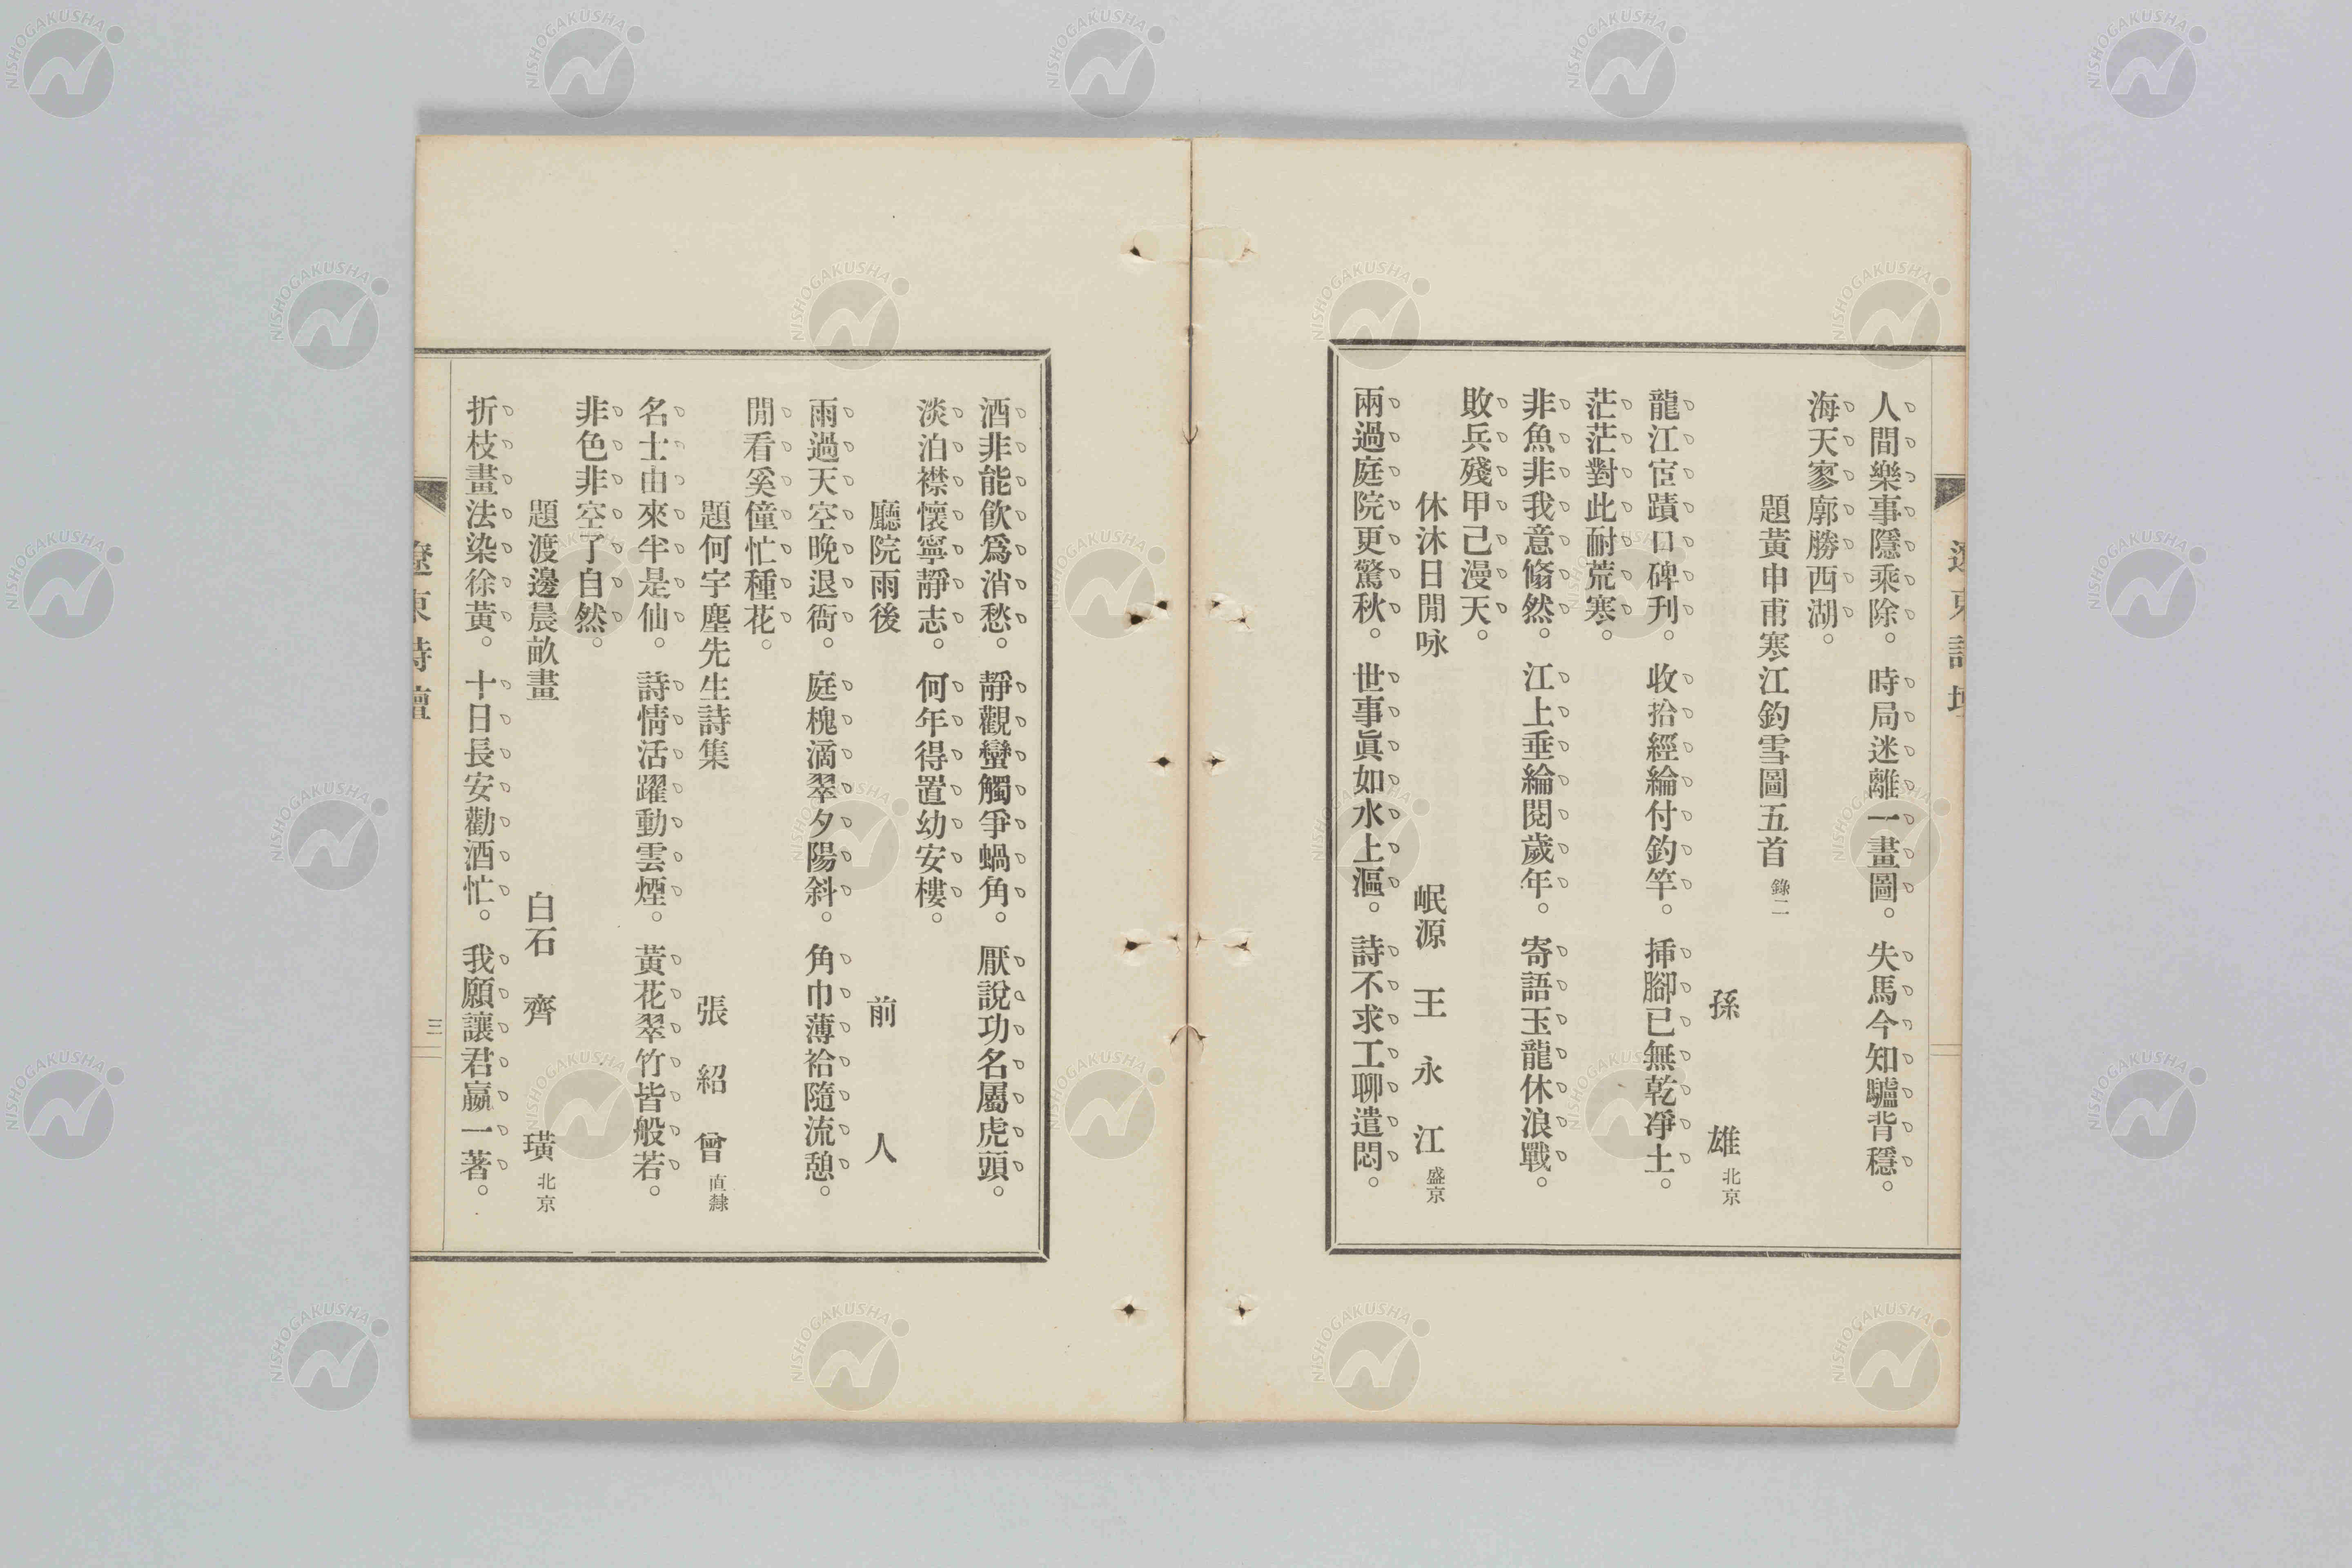 人間樂事隱乘除。時局迷離一畫圖。失馬今知驢背穩。
海天寥廓勝西湖。
題黃申甫寒江釣雪圖五首 錄二
孫 雄 北京
龍江宦蹟口碑刋。收拾經綸付釣竿。揷腳已無乾凈土。
茫茫對此耐荒寒。
非魚非我意翛然。江上垂綸閱歲年。寄語玉龍休浪戰。
敗兵殘甲己漫天。
休沐日閒咏
岷源 王永江 盛京
兩過庭院更驚秋。世事眞如水上漚。詩不求工聊遣悶。
酒非能飮爲消愁。靜觀蠻觸爭蝸角。厭說功名屬虎頭。
淡泊襟懷寧靜志。何年得置幼安樓。
廳院雨後
前人
雨過天空晚退衙。庭槐滴翠夕陽斜。角巾薄袷隨流憩。
閒看奚僮忙種花。
題何宇塵先生詩集
張紹曾 直隸
名士由來半是仙。詩情活躍動雲煙。黃花翠竹皆般若。
非色非空了自然。
題渡邊晨畝畫
白石 齊璜 北京
折枝畫法染徐黃。十日長安勸酒忙。我願讓君贏一著。
遼東詩壇
三
NISHOGAKUSHA